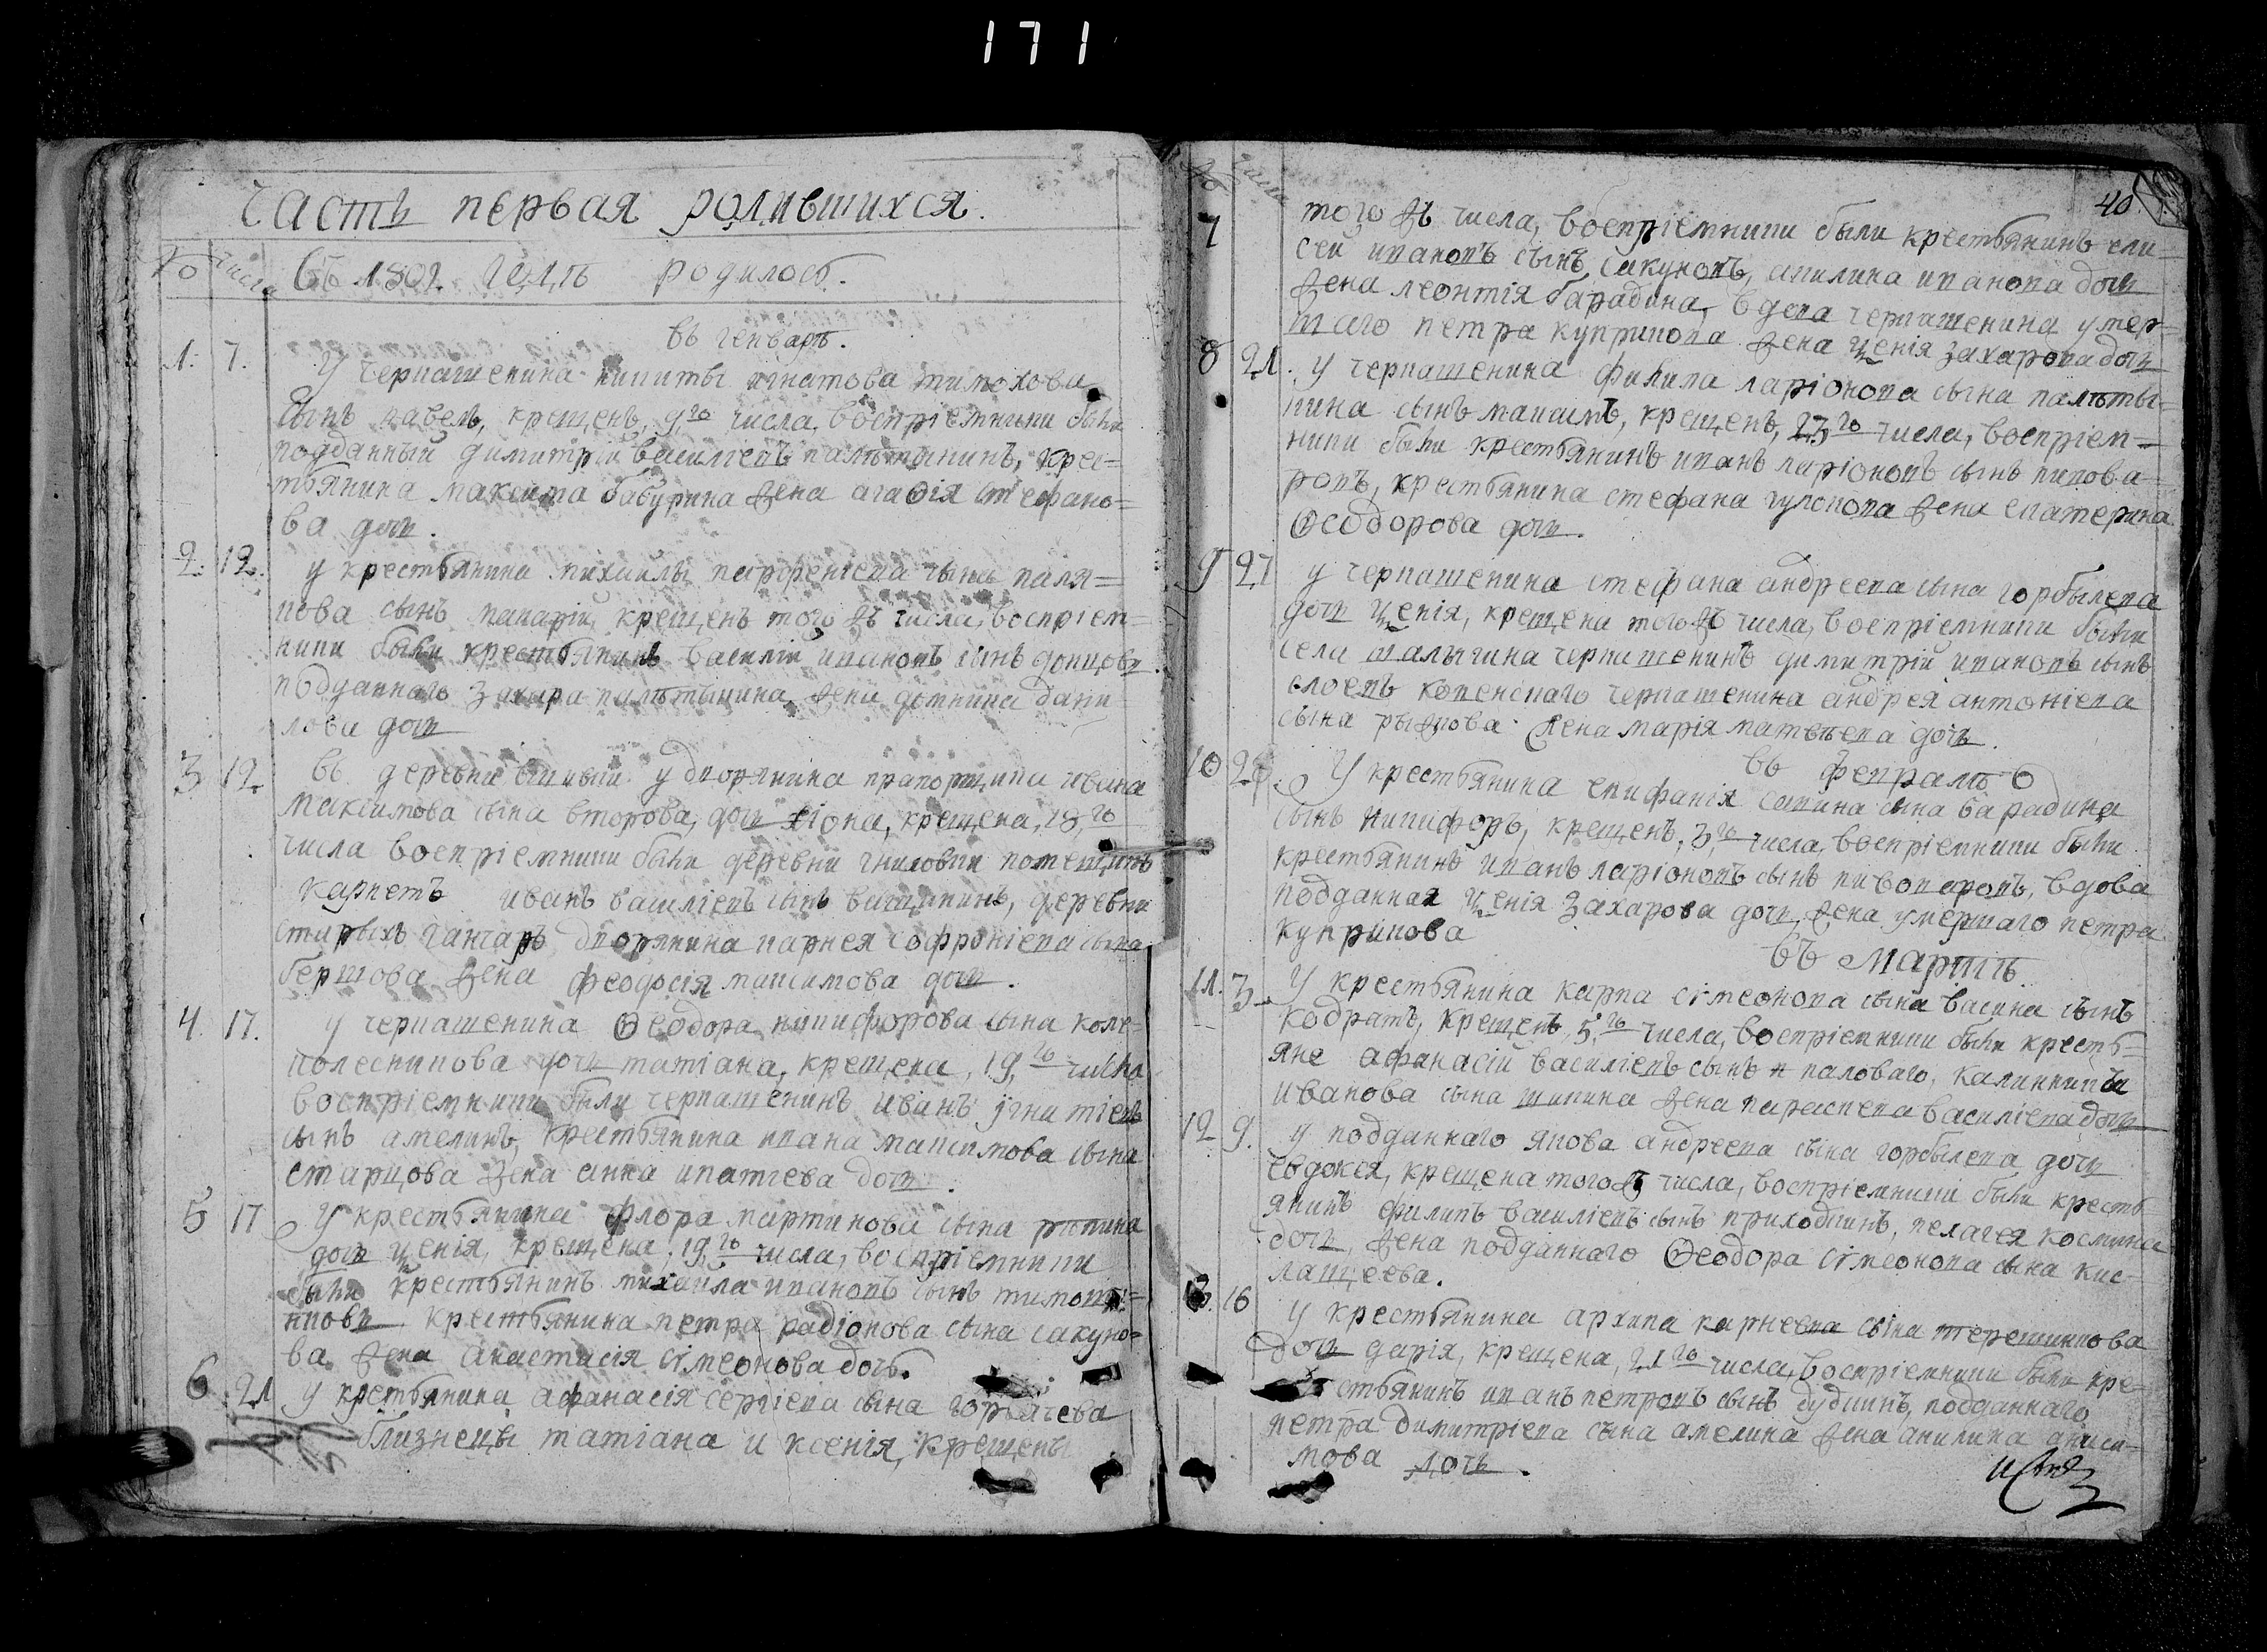 171
часть первая родившихся.
№ числа Въ 1802 годѣ родилось.
въ генварѣ.
1. 7. У черкашенина никиты игнатова тимохова
сынъ павелъ, крещенъ, 9,го числа, воспріемники были
подданный димитрій василіевъ палътынинъ, крес=
тьянина максима бабурина жена агаѳія стефано=
ва дочь.
2. 12. у крестьянина михаилы парфеніева сына поля=
кова сынъ макарій, крещенъ того жъ числа, воспріем=
ники были крестьянинъ василій ивановъ сынъ донцовъ
подданнаго захара палътынина жена домника дани=
лова дочь
3 12 въ деревни у дворянина прапорщика ивана
максимова сына второва, дочь хіона, крещена, 18,го
числа воспріемники были деревни гниловки помещикъ
карнетъ иванъ василіевъ сынъ, деревни
старыхъ ганчаръ дворянина карнея софроніева сына
бершова жена феодосія максимова дочь.
4. 17. у черкашенина Ѳеодора никифорова сына коле=
полесникова дочь татіана, крещена, 19,го числа
воспріемники были черкашенинъ иванъ игнатіевъ
сынъ амелинъ, крестьянина ивана максимова сына
старцова жена анна ипатіева дочь.
5 17 У крестьянина флора мартинова сына рюпина
дочь ксенія, крещена, 19,го числа, воспріемники
были крестьянинъ михаила ивановъ сынъ
крестьянина петра радіонова сына сакуно=
ва жена анастасія сімеонова дочь.
6 21 у крестьянина афанасія сергіева сына горбачева
близнецы татіана и ксенія, крещены
№ числа 40
7 того жъ числа, воспріемники были крестьянинъ ели=
сей ивановъ сынъ сакуновъ, акилина иванова дочь
жена леонтія барадина, вдова черкашенина умер=
шаго петра куприкова жена ксенія захарова дочь
8 21. у черкашенина филипа ларіонова сына палъты=
нина сынъ максимъ, крещенъ, 23,го числа, воспріем=
ники были крестьянинъ иванъ ларіоновъ сынъ пивова=
ровъ, крестьянина стефана гулопова жена екатерина
Ѳеодорова дочь.
9 27 у черкашенина стефана андреева сына горбылева
дочь ксенія, крещена того жъ числа, воспріемники были
села шалыгина черкашенинъ димитрій ивановъ сынъ
черкашенина андрея антоніева
сына рыжова жена марія матвѣева дочь.
въ февралѣ
10 28. У крестьянина епифанія савина сына барадина
сынъ никифоръ, крещенъ, 3,го числа, воспріемники были
крестьянинъ иванъ ларіоновъ сынъ пивоваровъ, вдова
подданная ксенія захарова дочь, жена умершаго петра
куприкова
въ мартѣ.
11. 3 У крестьянина карпа сімеонова сына васина сынъ
кодратъ, крещенъ, 5,го числа, воспріемники были кресть=
яне афанасій василіевъ сынъ
иванова сына шипина жена параскева василіева дочь
12 9. у подданнаго якова андреева сына горбылева дочь
евдокея, крещена того жъ числа, воспріемники были кресть=
янинъ филипъ василіевъ сынъ приходкинъ, пелагея космина
дочь, жена подданнаго Ѳеодора сімеонова сына кис=
лащеева.
13. 16 у крестьянина архипа карнеева сына терешинкова
дочь дарія, крещена, 21,го числа, воспріемники были кре=
стьянинъ иванъ петровъ сынъ дудкинъ, подданнаго
петра димитріева сына амелина жена акилина аниси=
мова дочь.